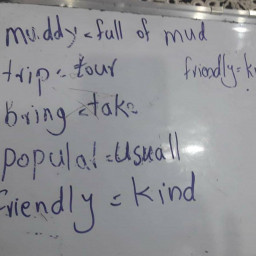 mu.ddy = full of mud
trip = tour
friendly = k
bring = take
popular = usuall
friendly = kind